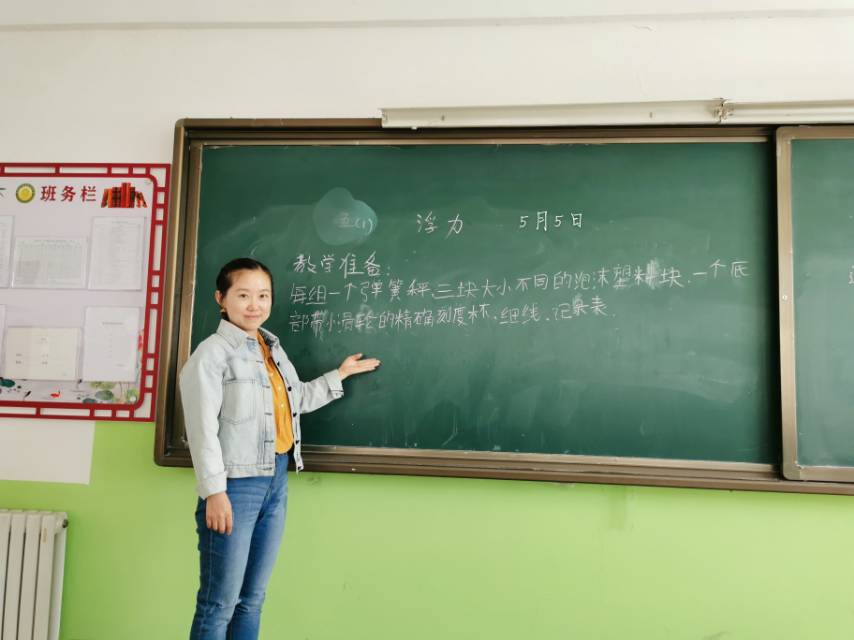 班务栏
五(1) 浮力 5月5日
教学准备:
每组一个弹簧秤、三块大小不同的泡沫塑料块、一个底
部带小滑轮的精确刻度杯、细线、记录表.